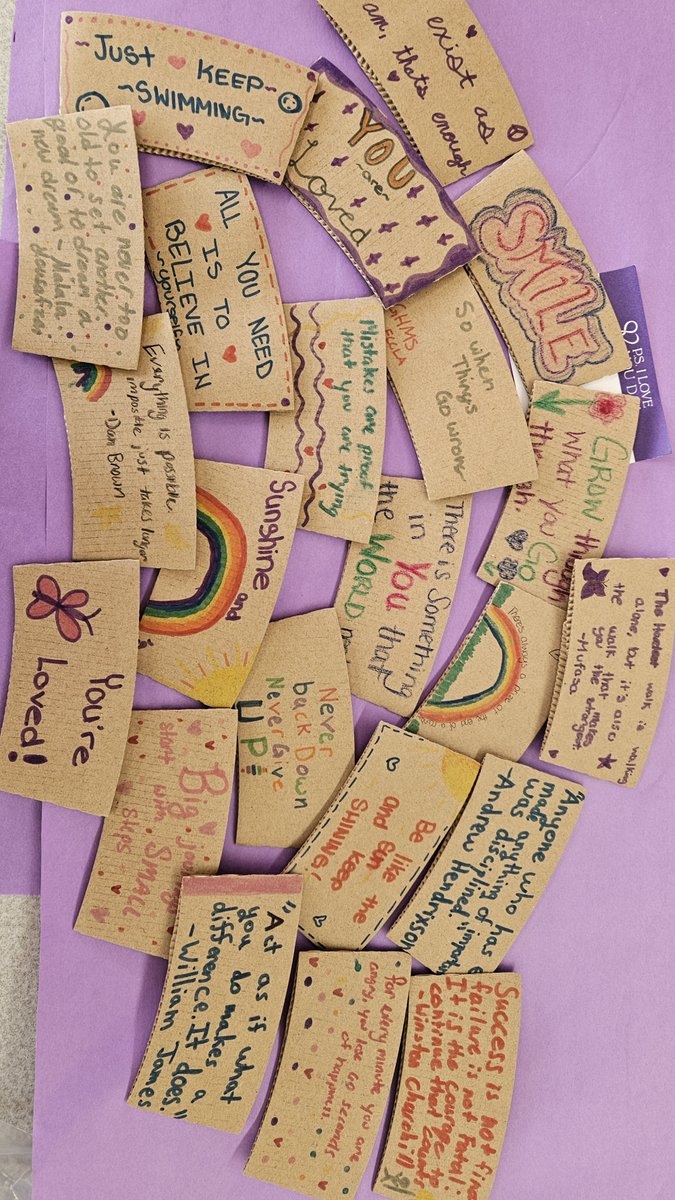 exist as
am, that's
enough
~Just KEEP~
~SWIMMING~
YOU
~are~
Loved
SMILE
You are never too
old to set another
goal or to dream a
new dream -
ALL YOU NEED
IS TO
BELIEVE IN
~yourself~
Q2
PS. I LOVE
GHMS
So when
Things
Go wrong
Mistakes are proof
that you are trying
GROW
What You Go
Everything is possible.
impossible just takes longer
-Dan Brown
Sunshine and
There is Something
in You that
the WORLD
The Hardest walk is walking
alone, but it's also
the walk that makes
you the strongest
-Mufasa
There's always a
at the end of
You're
Loved!
Never
back Down
Never Give
UP!
Big
start with SMALL
steps
Be like the
and
keep
SHINING!
"Anyone who has
made anything of
was disciplined."
-Andrew Hendrixson
"Act as if what
you do makes a
difference. It does."
-William James
for every minute you are
angry, you lose 60 seconds
of happiness
Success is not
failure is not Fatal:
It is the courage to
continue that
-Winston Churchill